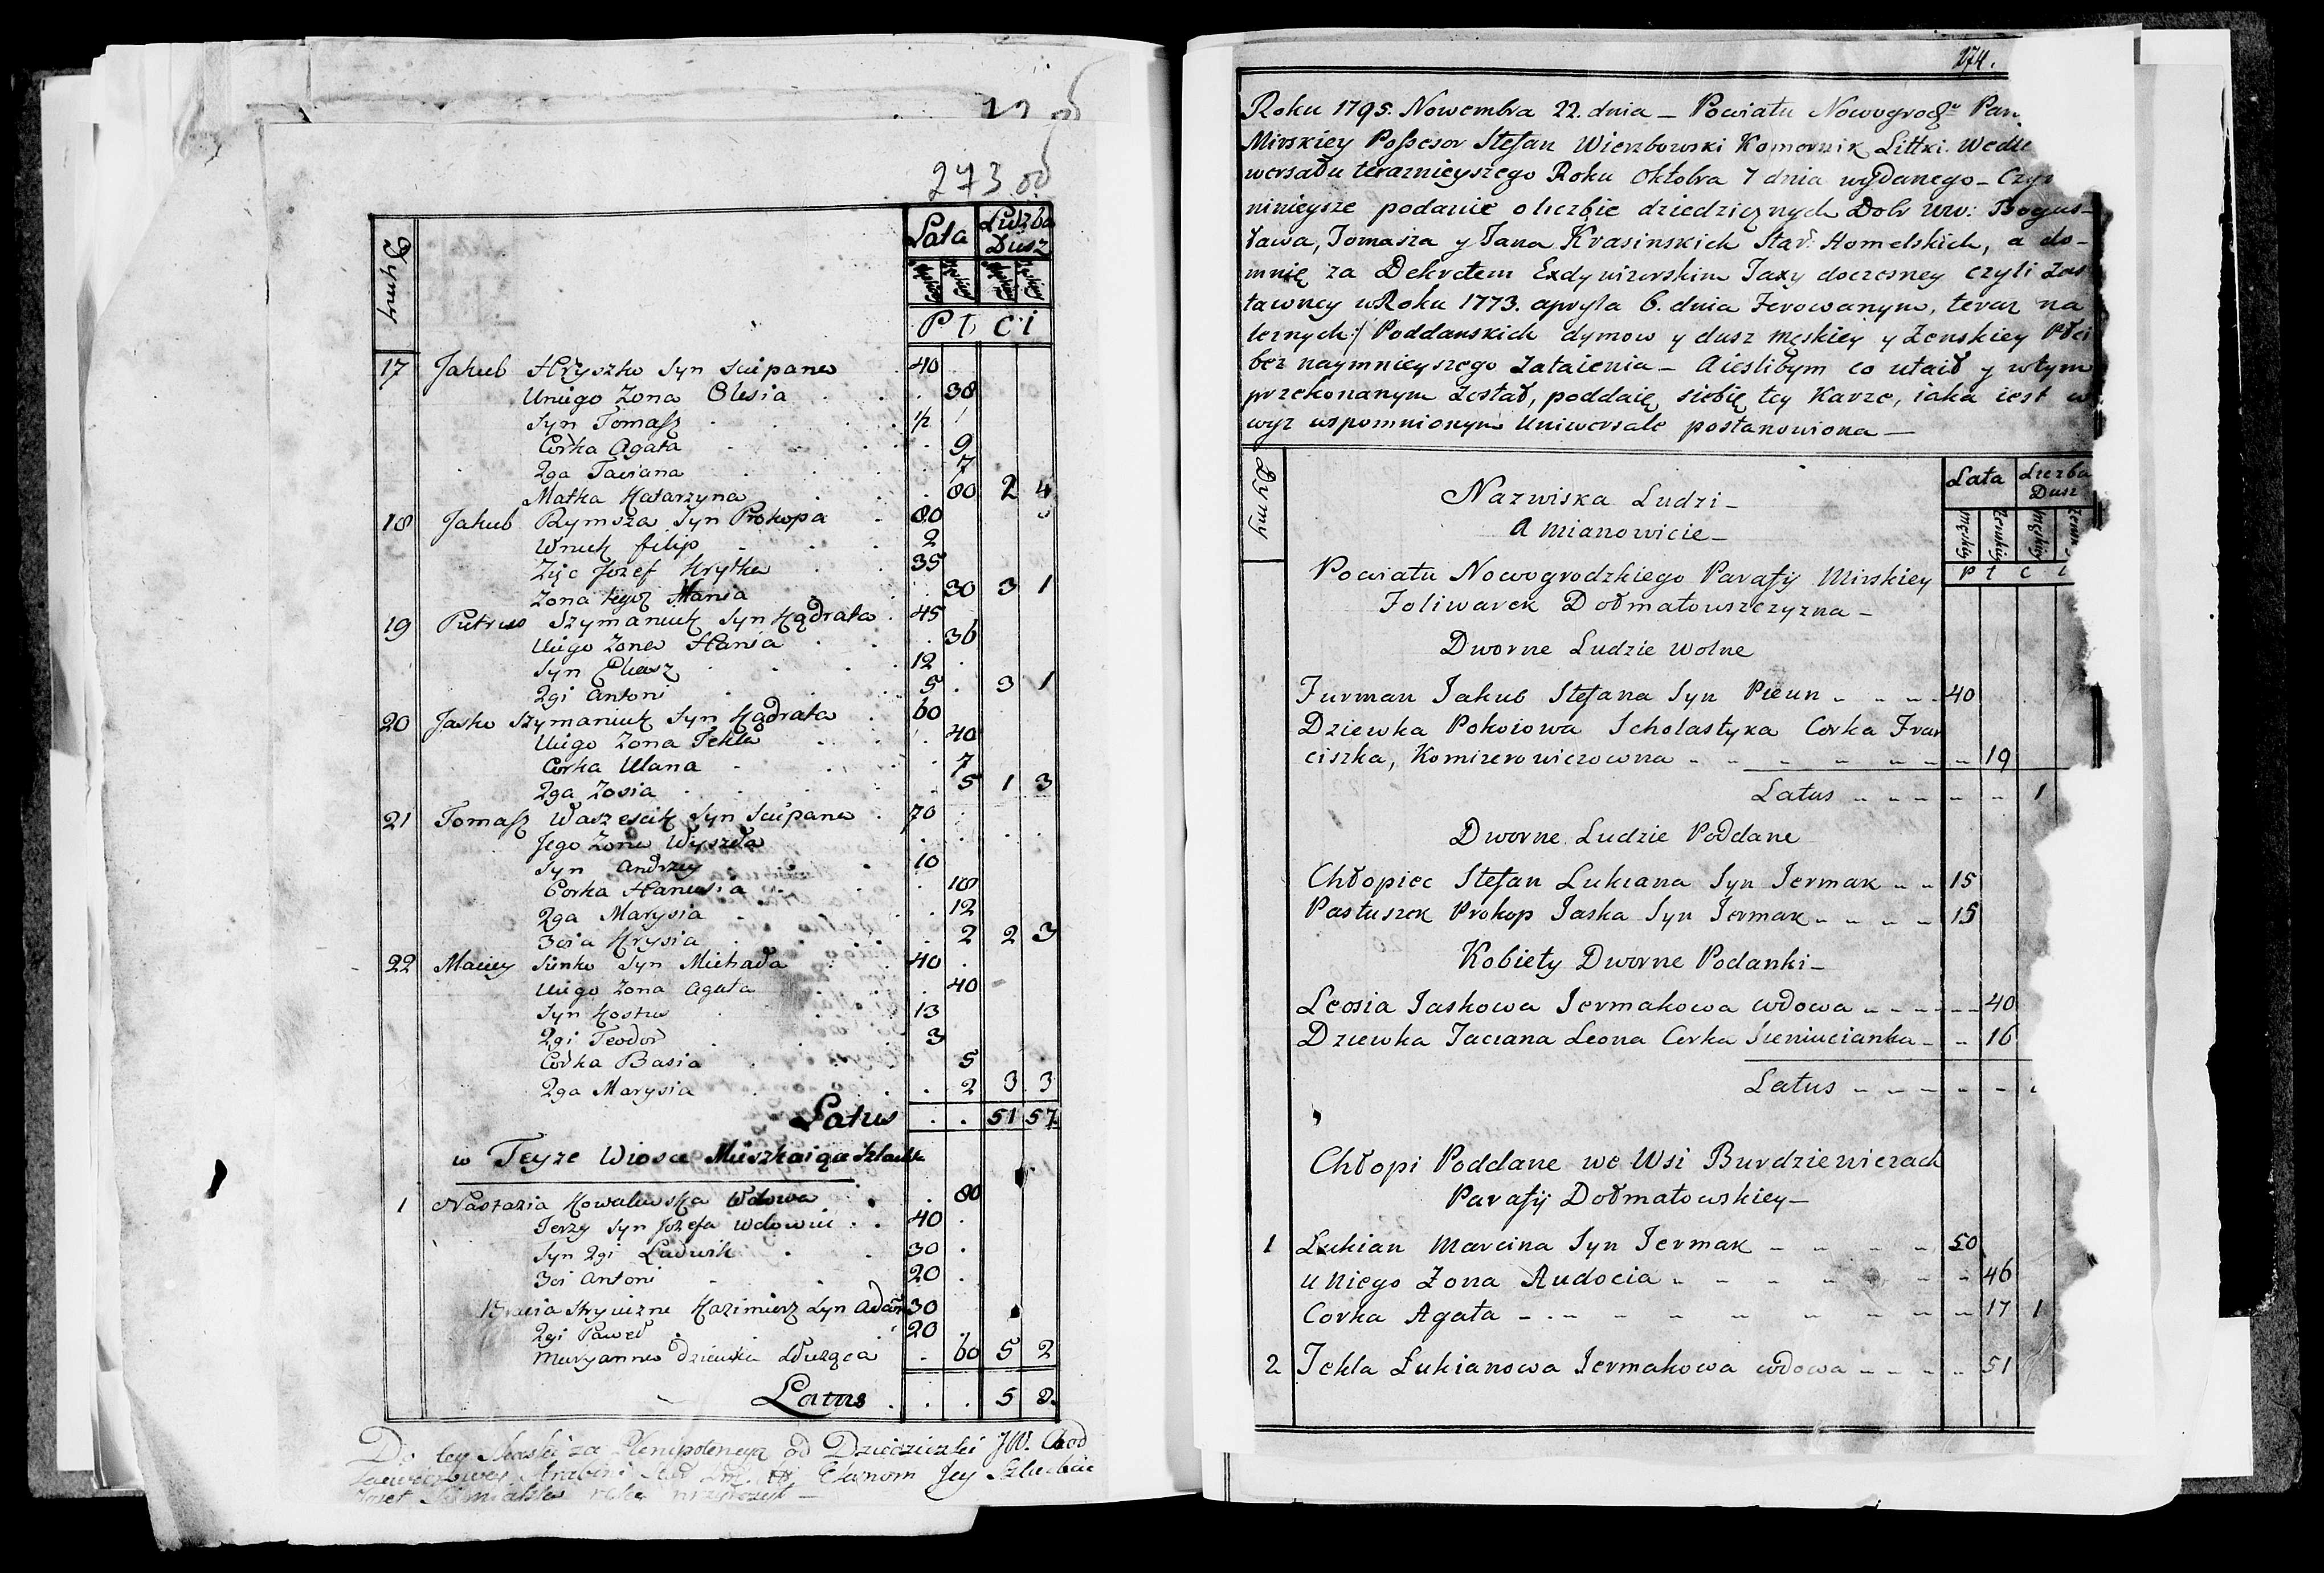 273 od
Dymy
Lata Liczba Dusz
Męskiey Zenskiey Męskiey Zenskiey
P ł c i
17 Jakub Hryszko Syn Sciepana 40
Uniego Zona Olesia 38
Syn Tomasz ½
Corka Agata 9
2ga Taciana 7
Matka Katarzyna 80 2 4
18 Jakub Rymsza Syn Prokopa 80
Wnuk filip 2
Zięc Jozef Hrytka 35
Zona tegoż Hania 30 3 1
19 Pietruś Szymaniuk Syn Kądrata 45
Uniego Zona Hania 36
Syn Eliasz 12
2gi Antoni 5 3 1
20 Jasko Szymaniuk Syn Kądrata 60
Uniego Zona Tekla 40
Corka Ulana 7
2ga Zosia 5 1 3
21 Tomasz Waszescik Syn Sciepana 70
Jego Zona Wyszła
Syn Andrzey 10
Corka Hanusia 18
2ga Marysia 12
3cia Krysia 2 2 3
22 Maciey Sienko Syn Michała 40
Uniego Zona Agata 40
Syn Kostus 13
2gi Teodor 3
Corka Basia 5
2ga Marysia 2 3 3
Latus 51 57
w Teyze Wiosce Mieszkaiąca Szlachta
1 Nastazia Kowalewska Wdowa 80
Jerzy Syn Jozefa wdowiec 40
Syn 2gi Ludwik 30
3ci Antoni 20
Bracia stryieczne Kazimierz Syn Adama 30
2gi Paweł 20
Maryanna dziewka służąca 60 5 2
Latus 5 2
Do tey Skazki za Plenipotencyą od Dziedziczki JW.
274.
Roku 1795. Nowembra 22. dnia – Powiatu Nowogrodzo Par
Mirskiey Possesor Stefan Wierzbowski Komornik Littki. Wedle
wersału teraznieyszego Roku Oktobra 7 dnia wydanego – Czy
ninieysze podanie o liczbie dziedzicznych Dobr ww: Bogus-
ława, Tomasza y Jana Krasinskich Star: Homelskich, a do-
mnię za Dekretem Exdywizorskim Taxy doczesney czyli Zas
tawney w Roku 1773. apryla 6. dnia Ferowanym, teraz na
leznych:/ Poddanskich dymow y dusz męskiey y Zenskiey Płci
bez naymnieyszego Zataienia – A iesliбym co utaił y wtym
przekonanym Został, poddaię siebię tey Karze, iaka iest w
wyz wspomnionym Uniwersale postanowiona –
Dymy
Nazwiska Ludzi –
A Mianowicie –
Lata Liczba Dusz
Męskiey Zenskiey Męskiey Zensk
P ł c i
Powiatu Nowogrodzkiego Parafij Mirskiey
Foliwarek Dołmatowszczyzna –
Dworne Ludzie Wolne
Furman Jakub Stefana Syn Pieun 40
Dziewka Pokoiowa Scholastyka Corka Fran
ciszka, Komizerowiczowna 19
Latus 1
Dworne Ludzie Poddane
Chłopiec Stefan Lukiana Syn Jermak 15
Pastuszek Prokop Jaska Syn Jermak 15
Kobiety Dworne Podanki –
Leosia Jaskowa Jermakowa wdowa 40
Dziewka Taciana Leona Corka Sieniucianka 16
Latus
Chłopi Poddane we Wsi Burdziewiczach
Parafij Dołmatowskiey –
1 Lukian Marcina Syn Jermak 50
u Niego Zona Audocia 46
Corka Agata 17 1
2 Tekla Łukianowa Jermakowa wdowa 51